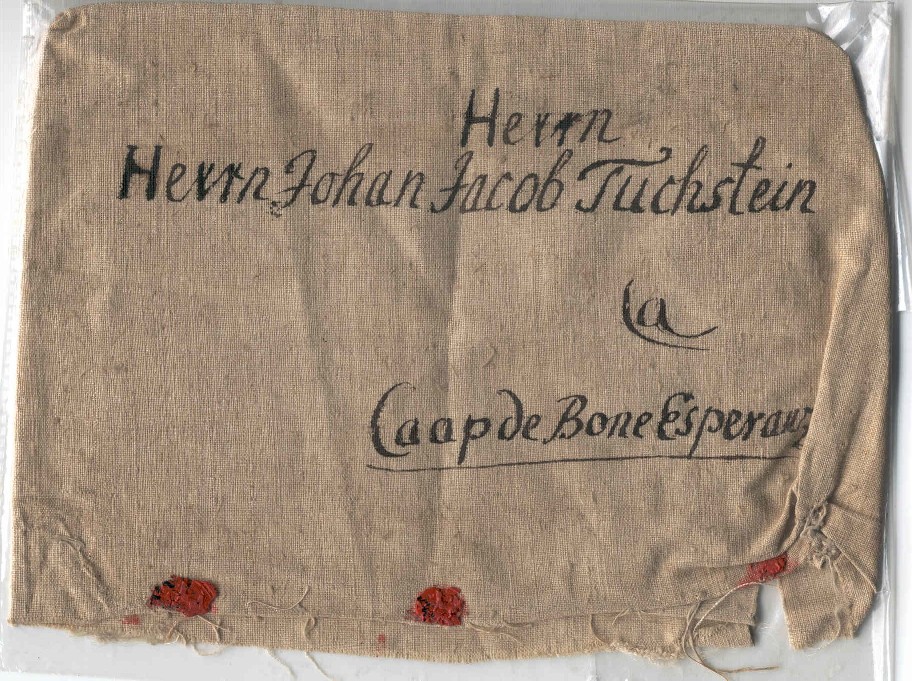 Herrn
Herrn Johan Jacob Tuchstein
la
Caap de Bone Esperanz